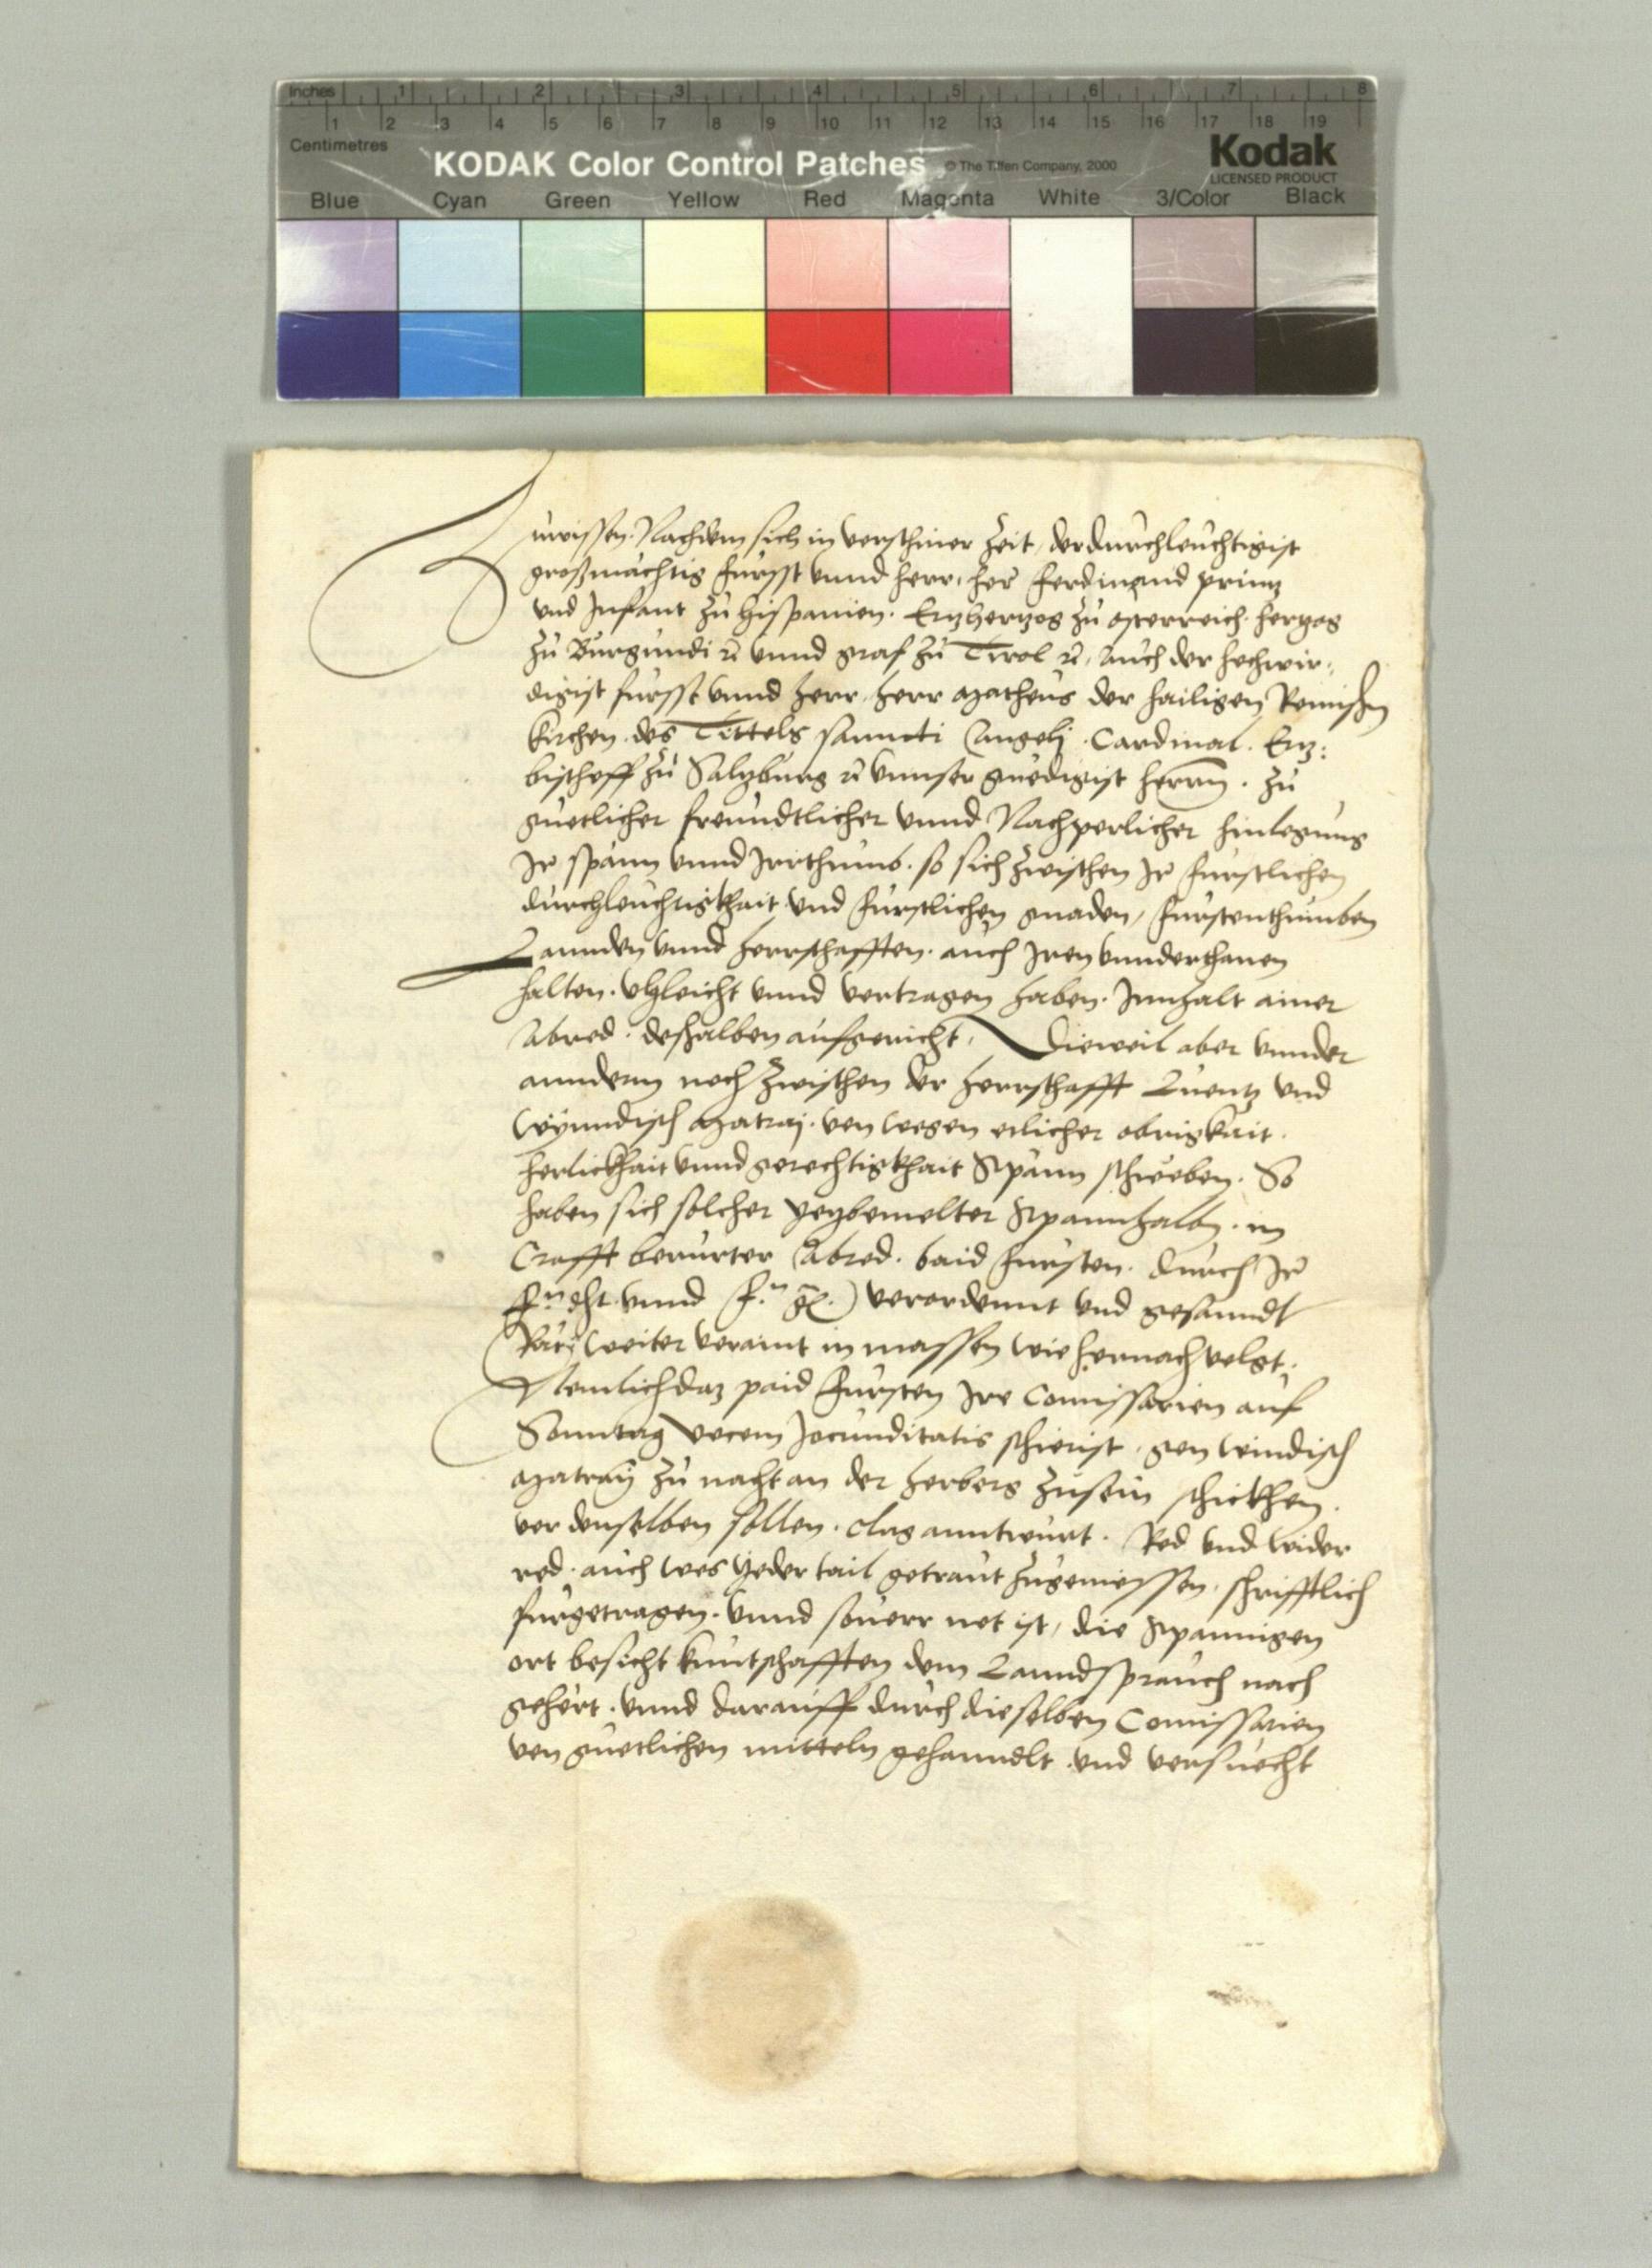 Inches 1 2 3 4 5 6 7 8
1 2 3 4 5 6 7 8 9 10 11 12 13 14 15 16 17 18 19
Centimetres
KODAK Color Control Patches © The Tiffen Company, 2000 Kodak
LICENSED PRODUCT
Blue Cyan Green Yellow Red Magenta White 3/Color Black
Zuwissen. Nachdem sich in verschiner Zeit, der durchleuchtigist
großmächtig Fürsst vnnd herr, her Ferdinannd printz
vnd Infant zu hispanien. Ertzhertzog zu osterreich. hertzog
zu Burgundi rc vnnd graf zu Tirol rc, auch der hochwir:
digist fürsst vnnd herr, herr Matheus der hailigen Römischen
kirchen des Tittels sanncti Anngelj. Cardinal. Ertz:
bischoff zu Saltzburg rc vnnser gnedigist herrn. zu
guetlicher freundtlicher vnnd Nachperlicher hinlegung
Ir spänn vnnd Irrthumb. so sich zwischen Ir fürstlichen
durchleuchtigkhait vnd fürstlichen gnaden, fürstenthumben
Lannden vnnd herrschafften. auch Iren vnnderthanen
halten. vergleicht vnnd vertragen haben. Innhalt ainer
Abred. deßhalben aufgericht, Dieweil aber vnnder
anndern noch zwischen der herrschafft Luentz vnd
Wynndisch Matraj. von wegen etlicher obrigkait.
herlickhait vnnd gerechtigkhait Spänn schweben. So
haben sich solcher yetzbemelter Spännhalbn. in
Crafft berürter Abred. baid fürsten. durch Ir
f.n dht. vnnd f.n g. verordennt vnd gesanndt
Rätj weiter veraint in massen wie hernach volgt.
Nemlich daz paid fürsten Ire Comissarien auf
Sonntag vocem Jocunditatis schierist, gen windisch
Matraÿ zu nacht an der herberg zusein schickhen.
vor denselben sollen. clag anntwurt. Red vnd wider
red. auch wes yeder tail getraut zugeniessen, schrifftlich
fürgetragen. vnnd souerr not ist, die Spännigen
ort besicht kuntschafften dem Lanndsprauch nach
gehört. vnnd darauff durch dieselben Comissarien
von guetlichen mitteln gehanndlt vnd versuecht